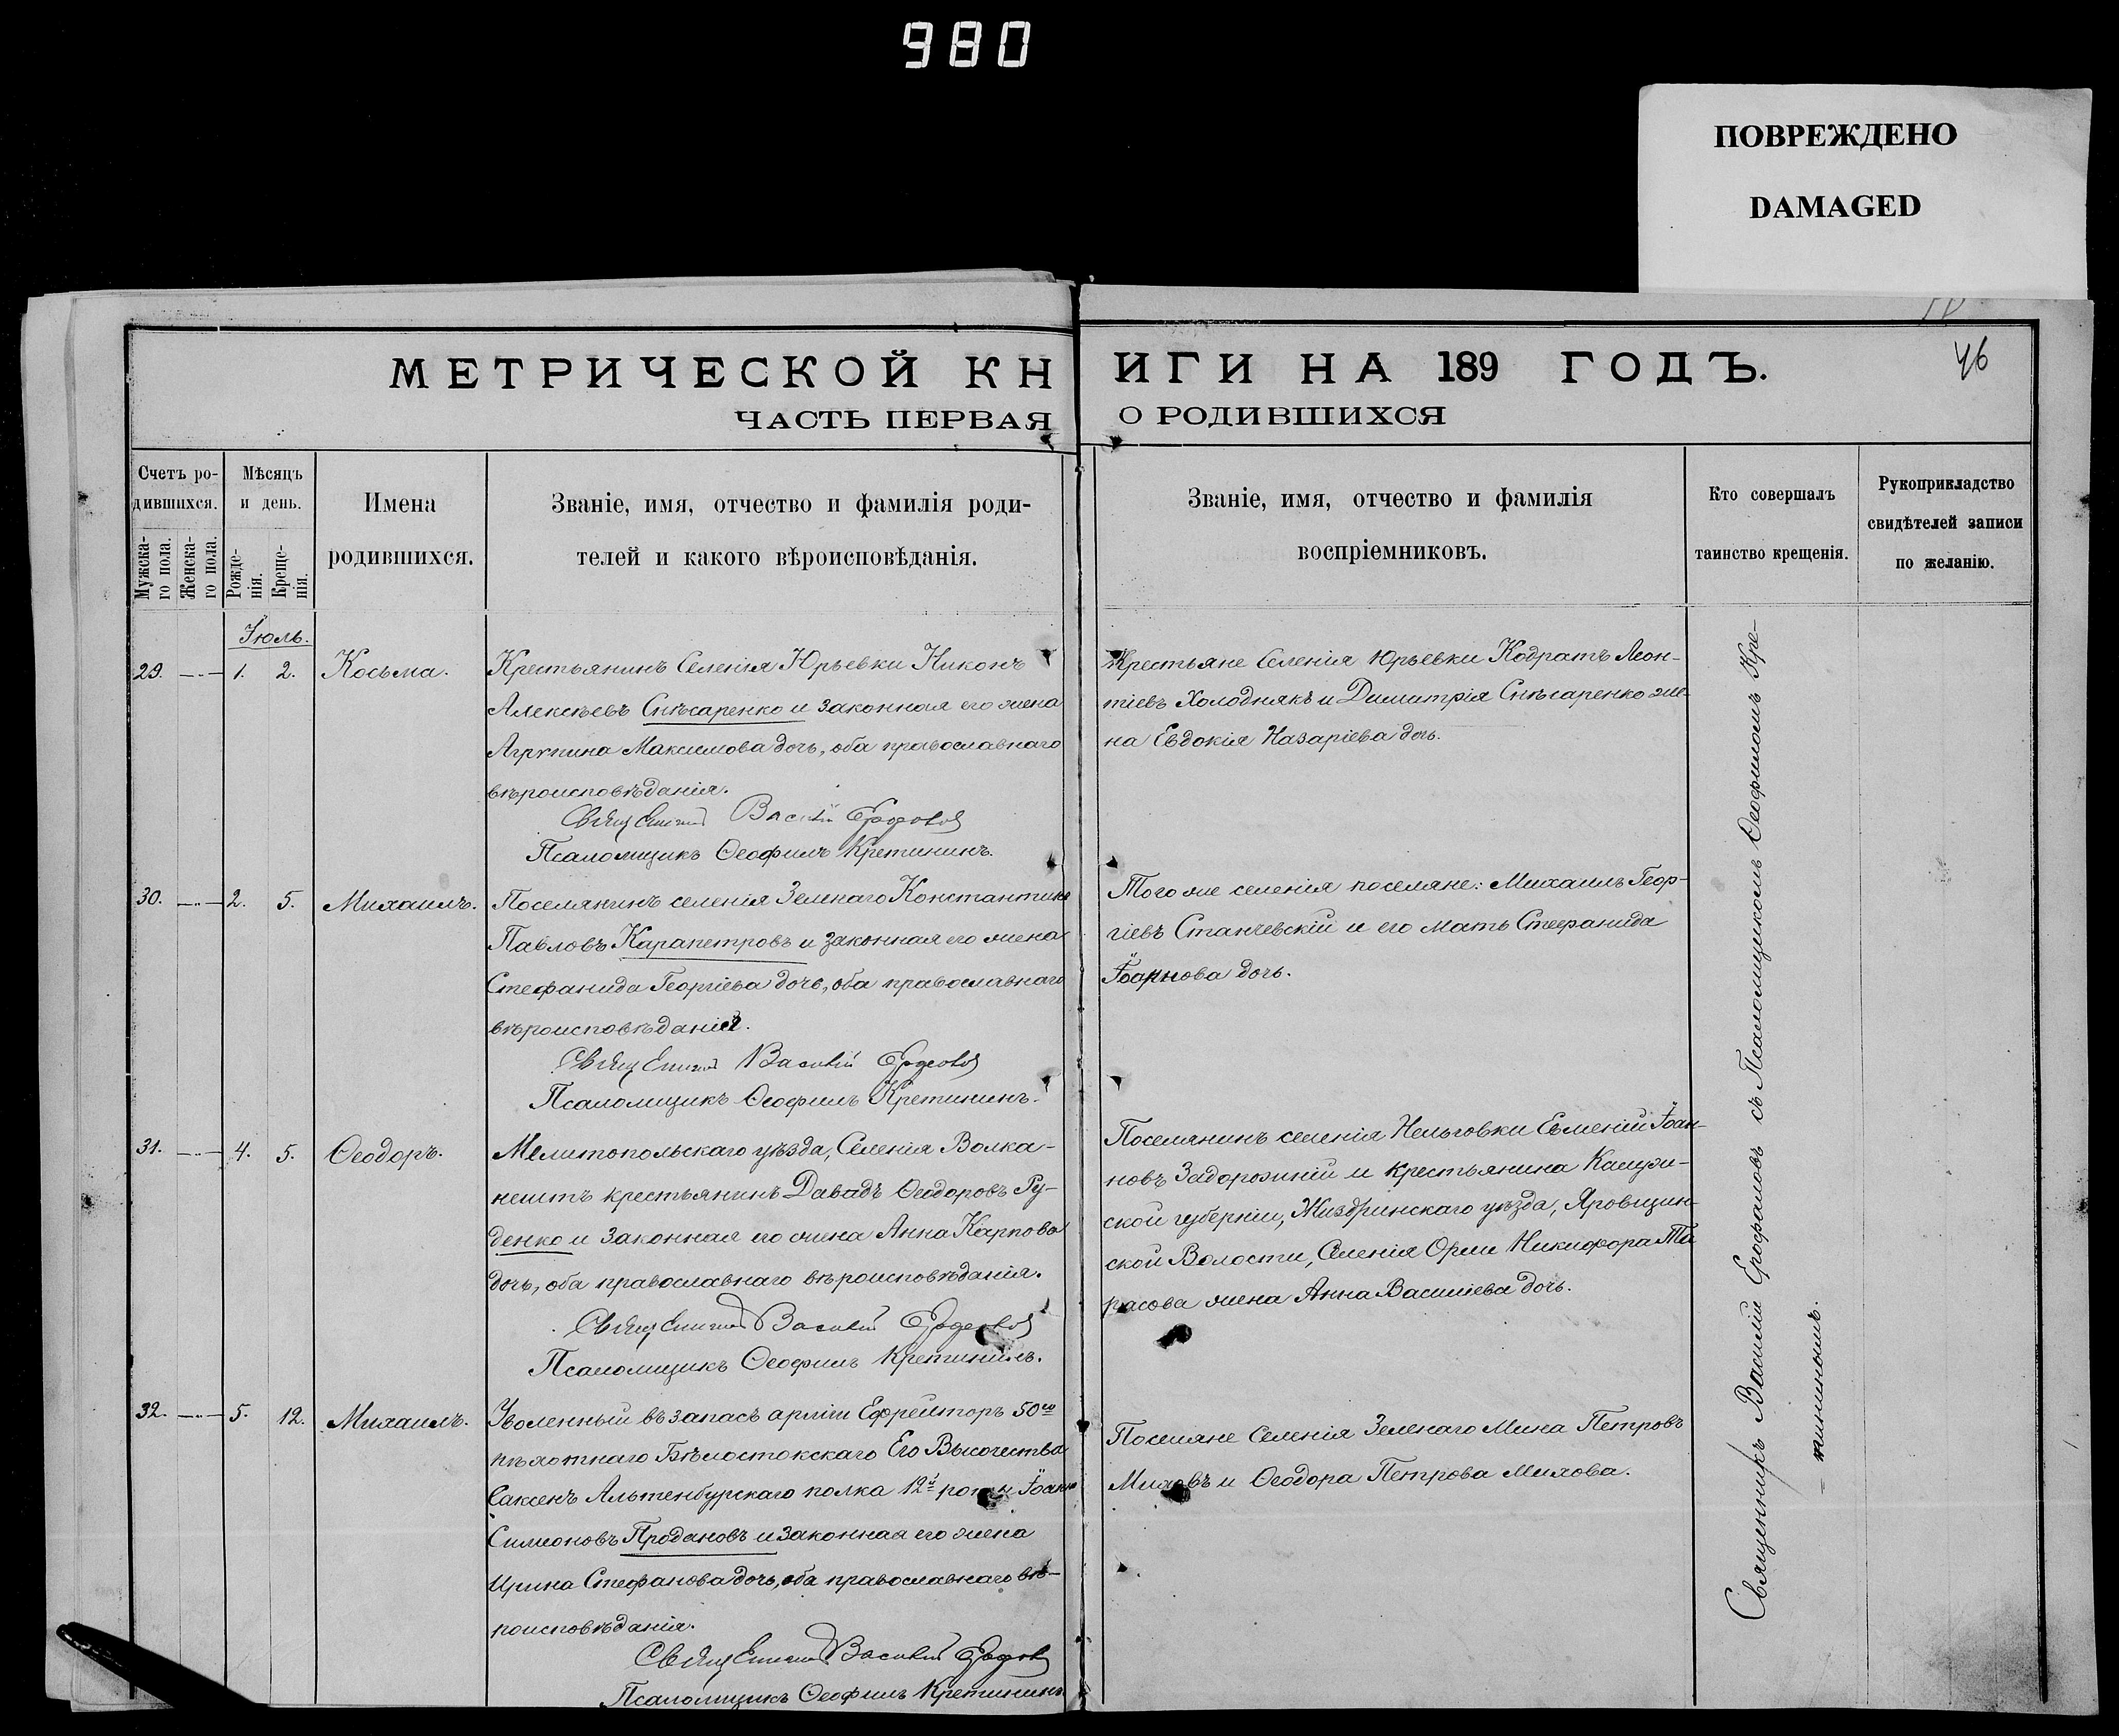 980
ПОВРЕЖДЕНО
DAMAGED
46
МЕТРИЧЕСКОЙ КНИГИ НА 189 ГОДЪ.
ЧАСТЬ ПЕРВАЯ О РОДИВШИХСЯ
Счетъ ро-
дившихся.
Мужска-
го пола.
Женска-
го пола.
Мѣсяцъ
и день.
Рожде-
нія.
Креще-
нія.
Имена
родившихся.
Званіе, имя, отчество и фамилія роди-
телей и какого вѣроисповѣданія.
Званіе, имя, отчество и фамилія
воспріемниковъ.
Кто совершалъ
таинство крещенія.
Рукоприкладство
свидѣтелей записи
по желанію.
Іюль.
29. —"— 1. 2. Косьма.
Крестьянинъ Селенія Юрьевки Никонъ
Алексѣевъ Снѣсаренко и законная его жена
Агрипина Максимова дочь, оба православнаго
вѣроисповѣданія.
Священникъ Василій
Псаломщикъ Ѳеофилъ Кретининъ.
Крестьяне Селенія Юрьевки Кодратъ Леон-
тіевъ Холоднякъ и Димитрія Снѣсаренко же-
на Евдокія Назаріева дочь.
30. —"— 2. 5. Михаилъ.
Поселянинъ селенія Зеленаго Константинъ
Павловъ Карапетровъ и законная его жена
Стефанида Георгіева дочь, оба православнаго
вѣроисповѣданія.
Священникъ Василій
Псаломщикъ Ѳеофилъ Кретининъ.
Того же селенія поселяне: Михаилъ Геор-
гіевъ Станчевскій и его мать Стефанида
Іоаннова дочь.
31. —"— 4. 5. Ѳеодоръ.
Мелитопольскаго уѣзда, Селенія Волка-
нешть крестьянинъ Давидъ Ѳеодоровъ Ру-
денко и законная его жена Анна Карпова
дочь, оба православнаго вѣроисповѣданія.
Священникъ Василій
Псаломщикъ Ѳеофилъ Кретининъ.
Поселянинъ селенія Нельговки Евменій Іоан-
новъ Задорожній и крестьянина Калуж-
ской губерніи, Жиздринскаго уѣзда, Яровщин-
ской Волости, Селенія Орли Никифора Та
расова жена Анна Васильева дочь.
32. —"— 5. 12. Михаилъ.
Уволенный въ запасъ арміи Ефрейторъ 50го
пѣхотнаго Бѣлостокскаго Его Высочества
Саксенъ Альтенбурскаго полка 12й роты Іоаннъ
Симеоновъ Продановъ и законная его жена
Ирина Стефанова дочь, оба православнаго вѣ-
роисповѣданія.
Священникъ Василій
Псаломщикъ Ѳеофилъ Кретининъ.
Поселяне Селенія Зеленаго Мина Петровъ
Миховъ и Ѳеодора Петрова Михова.
Священникъ Василій Ерофаловъ съ Псаломщикомъ Ѳеофиломъ Кре-
– тининымъ.